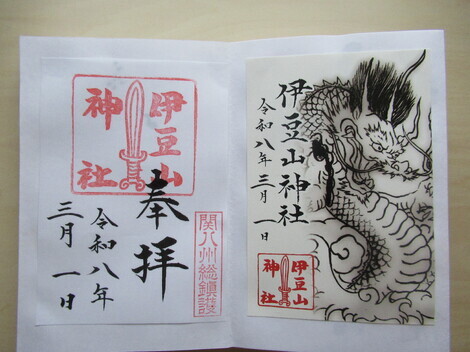 伊豆山
神社
奉拝
令和八年
三月一日
関八州総鎮護
伊豆山神社
令和八年三月一日
伊豆山
神社